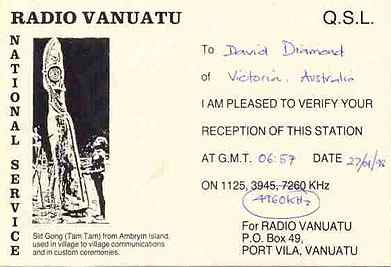 RADIO VANUATU
Q.S.L.
NATIONAL SERVICE
To David Diamond
of Victoria, Australia
I AM PLEASED TO VERIFY YOUR
RECEPTION OF THIS STATION
AT G.M.T. 06:57 DATE
ON 1125, 3945, 7260 KHz
4960KHz
For RADIO VANUATU
P.O. Box 49,
PORT VILA, VANUATU
Slit Gong (Tam Tam) from Ambrym Island,
used in village to village communications
and in custom ceremonies.